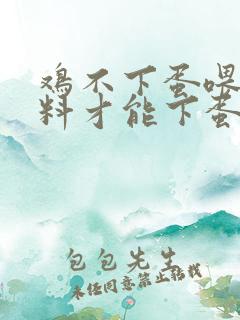 鸡不下蛋喂
料才能下蛋
包包先生
未经同意禁止转载